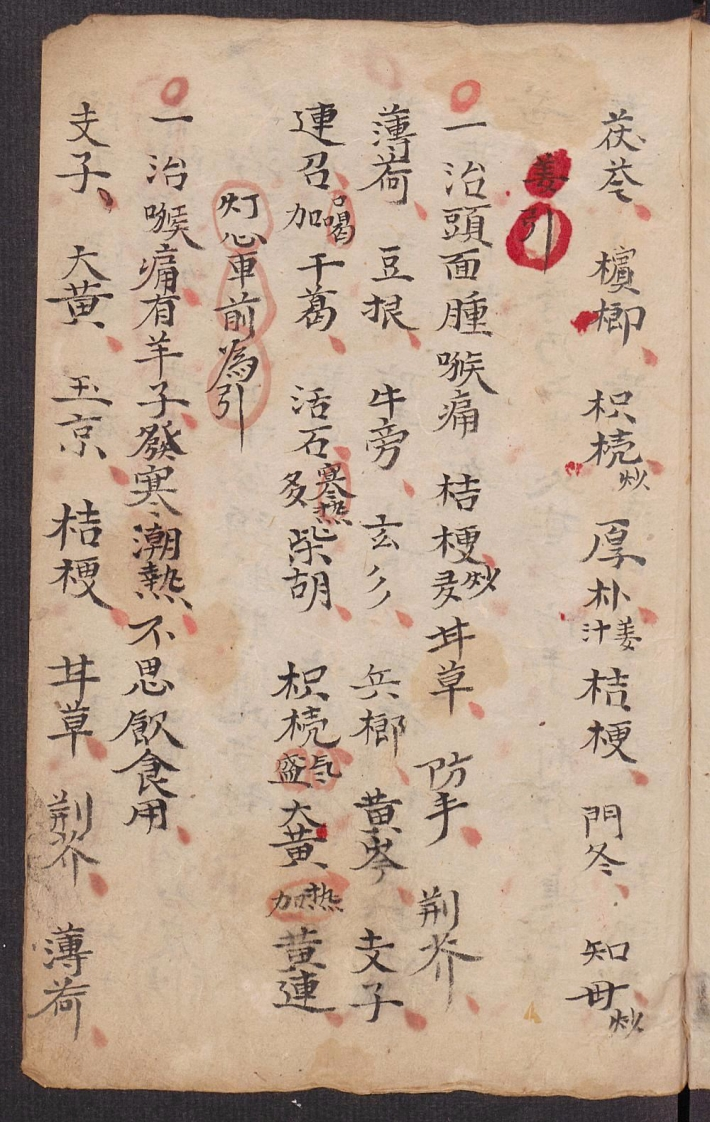 茯苓 檳榔 枳梡炒 厚朴姜汁 桔梗 門冬 知毋炒
姜引
一治頭面腫喉痛 桔梗炒 甘草 防手 荆芥
薄荷 豆根 牛旁 玄彡 兵榔 黄岑 支子
連召 喝加 干葛 活石 寒热多 柴胡 枳梡 氣盛 大黄 热加 黄連
灯心車前為引
一治喉痛有羊子發寒潮熱不思飲食用
支子 大黄 玉京 桔梗 甘草 荆芥 薄荷